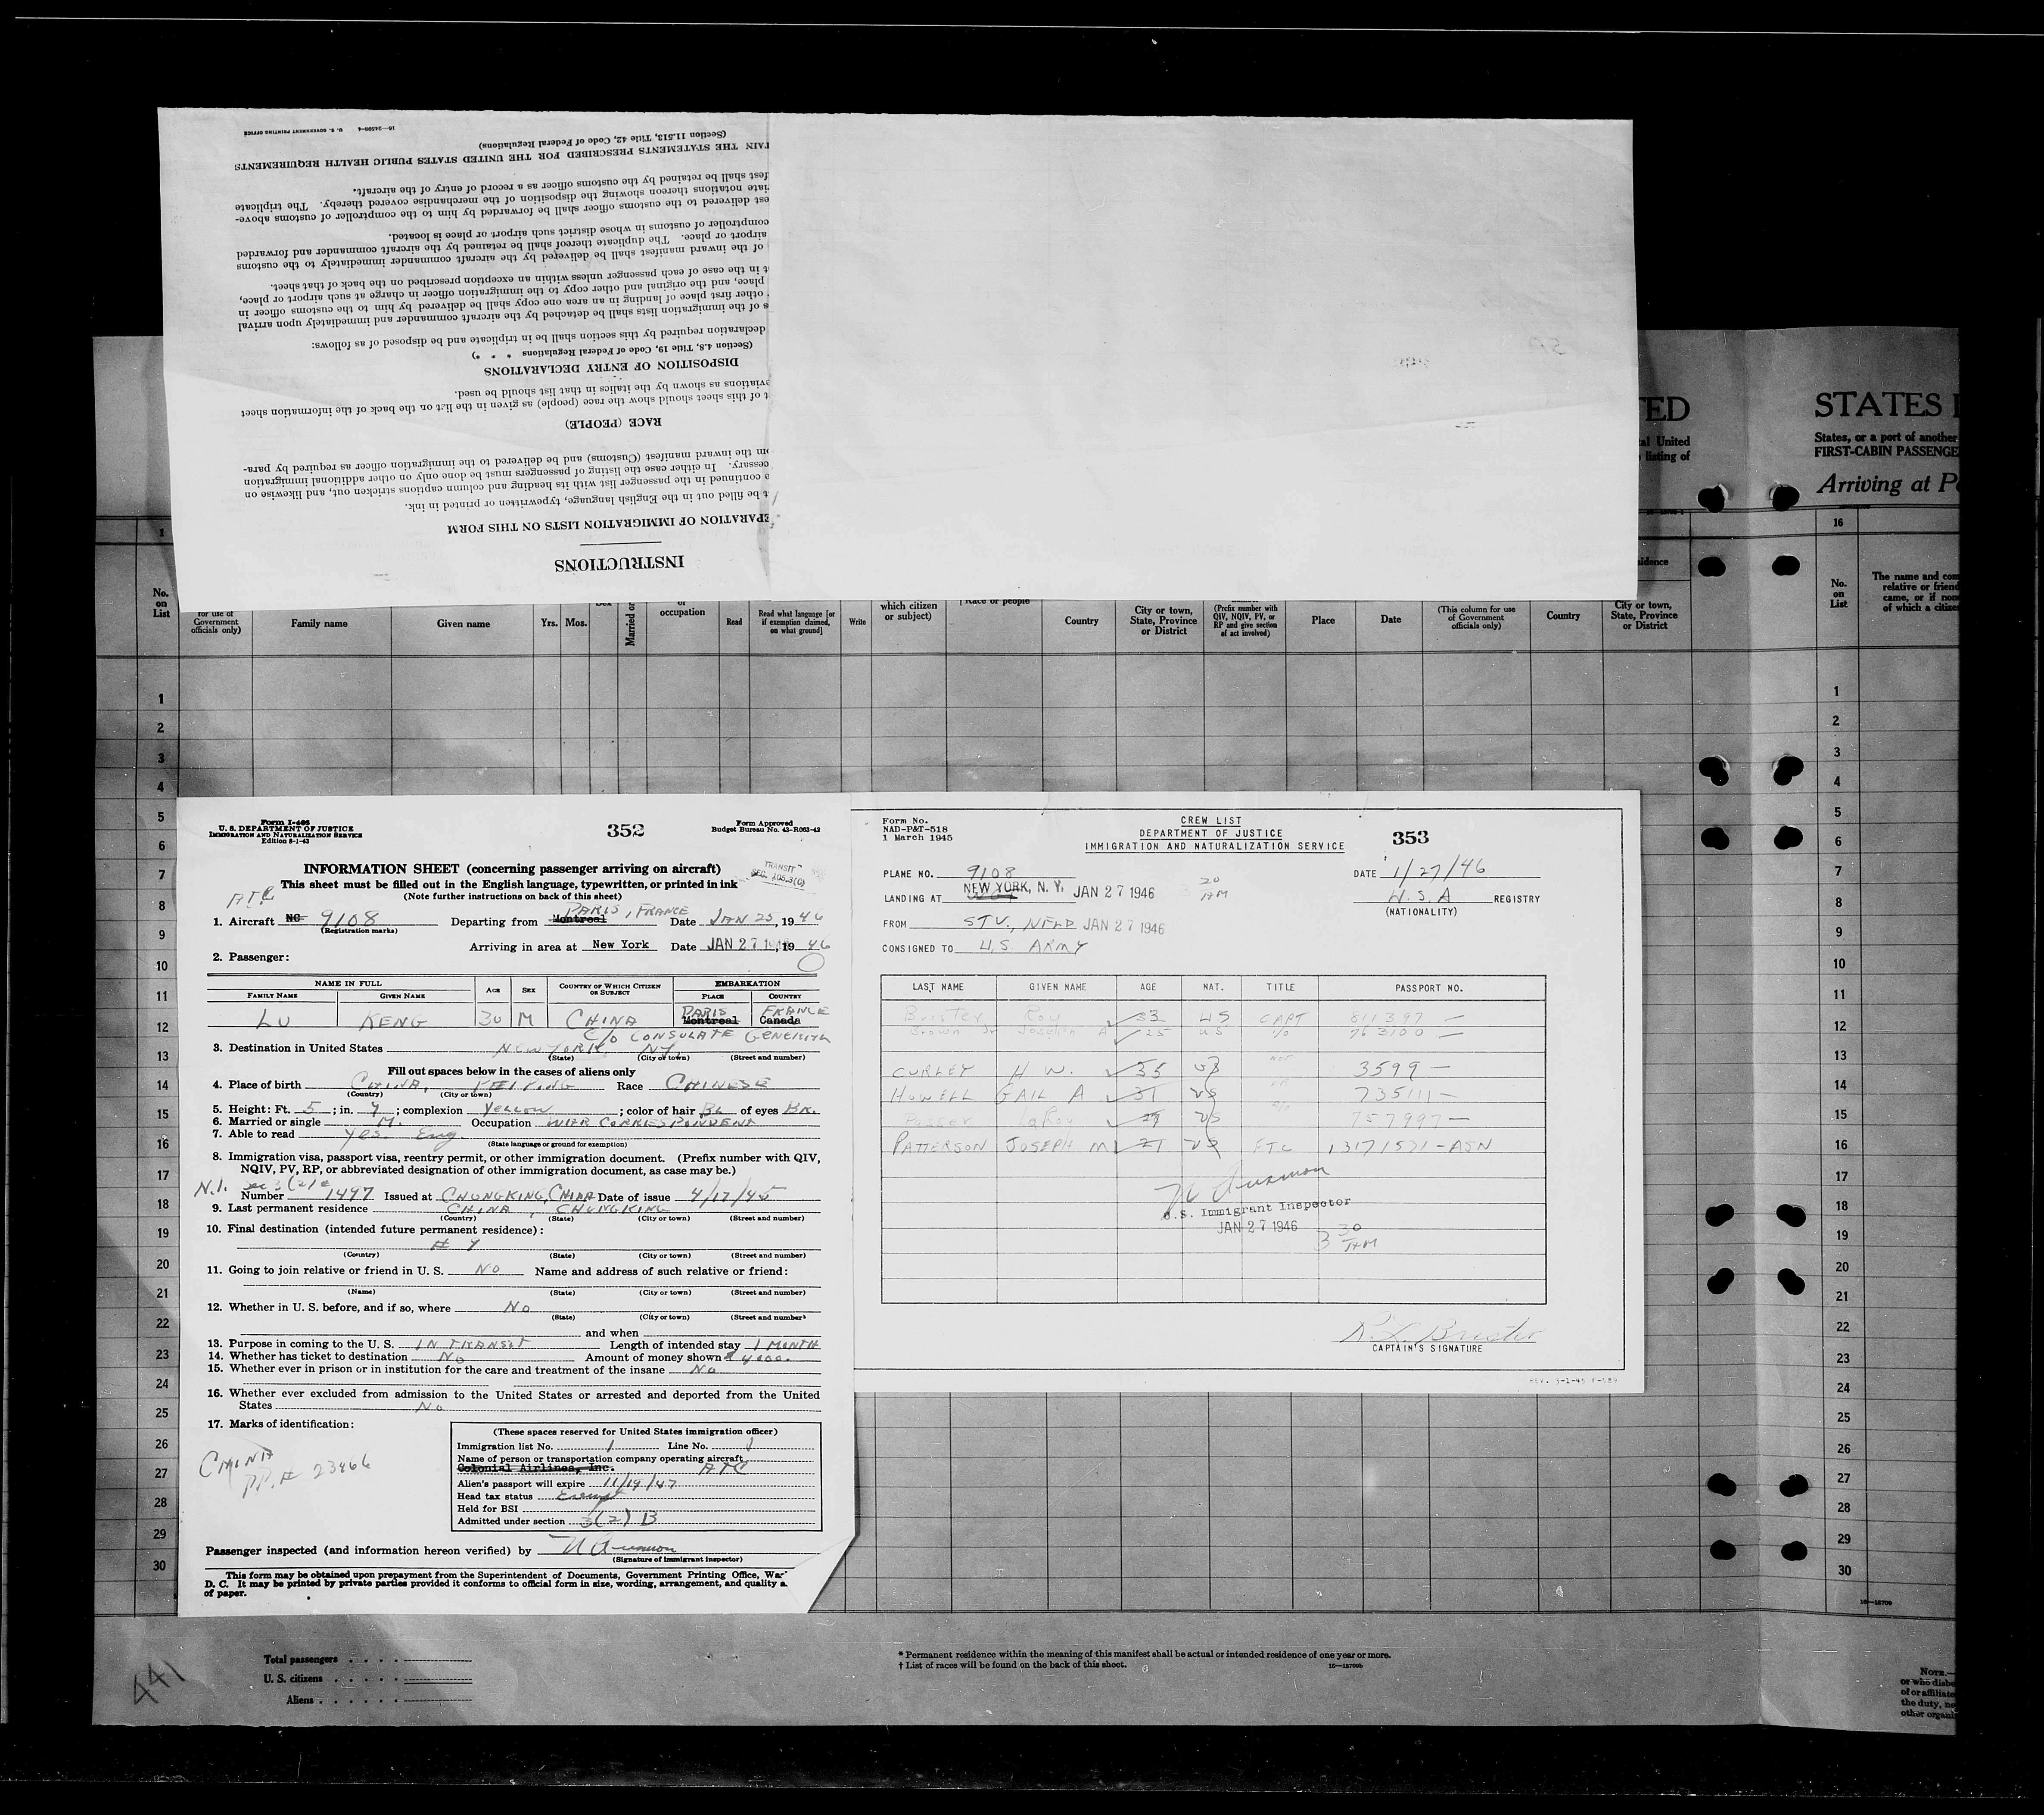 16—24598-4 U. S. GOVERNMENT PRINTING OFFICE
(Section 11.513, Title 42, Code of Federal Regulations)
TAIN THE STATEMENTS PRESCRIBED FOR THE UNITED STATES PUBLIC HEALTH REQUIREMENTS
fest shall be retained by the customs officer as a record of entry of the aircraft.
iate notations thereon showing the disposition of the merchandise covered thereby. The triplicate
est delivered to the customs officer shall be forwarded by him to the comptroller of customs above-
comptroller of customs in whose district such airport or place is located.
airport or place. The duplicate thereof shall be retained by the aircraft commander and forwarded
of the inward manifest shall be delivered by the aircraft commander immediately to the customs
t in the case of each passenger unless within an exception prescribed on the back of that sheet.
place, and the original and other copy to the immigration officer in charge at such airport or place,
other first place of landing in an area one copy shall be delivered by him to the customs officer in
s of the immigration lists shall be detached by the aircraft commander and immediately upon arrival
declaration required by this section shall be in triplicate and be disposed of as follows:
(Section 4.8, Title 19, Code of Federal Regulations * * *)
DISPOSITION OF ENTRY DECLARATIONS
eviations as shown by the italics in that list should be used.
t of this sheet should show the race (people) as given in the list on the back of the information sheet
RACE (PEOPLE)
om the inward manifest (Customs) and be delivered to the immigration officer as required by para-
cessary. In either case the listing of passengers must be done only on other additional immigration
e continued in the passenger list with its heading and column captions stricken out, and likewise on
t be filled out in the English language, typewritten or printed in ink.
EPARATION OF IMMIGRATION LISTS ON THIS FORM
INSTRUCTIONS
TED
al United
listing of
STATES
States, or a port of another
FIRST-CABIN PASSENGE
Arriving at P
1 16
No. on List
for use of Government officials only)
Family name Given name Yrs. Mos. Sex Married or
or occupation
Read Read what language [or if exemption claimed, on what ground] Write
which citizen or subject)
Race or people
Country City or town, State, Province or District
(Prefix number with QIV, NQIV, PV, or RP and give section of act involved)
Place Date (This column for use of Government officials only)
Country City or town, State, Province or District
idence
No. on List
The name and com
relative or friend
came, or if non
of which a citize
1
2
3
4
5
6
7
8
9
10
11
12
13
14
15
16
17
18
19
20
21
22
23
24
25
26
27
28
29
30
Form I-466
U. S. DEPARTMENT OF JUSTICE
IMMIGRATION AND NATURALIZATION SERVICE
Edition 8-1-43
352
Form Approved
Budget Bureau No. 43-R063-42
INFORMATION SHEET (concerning passenger arriving on aircraft)
TRANSIT
SEC. 105.3(C)
This sheet must be filled out in the English language, typewritten, or printed in ink
(Note further instructions on back of this sheet)
ATC
1. Aircraft NC 9108 Departing from Montreal PARIS, FRANCE Date JAN 25, 1946
(Registration marks)
Arriving in area at New York Date JAN 27 1946, 1946
2. Passenger:
NAME IN FULL AGE SEX COUNTRY OF WHICH CITIZEN OR SUBJECT EMBARKATION
FAMILY NAME GIVEN NAME PLACE COUNTRY
LU KENG 30 M CHINA PARIS Montreal FRANCE Canada
C/O CONSULATE GENERAL
3. Destination in United States NEW YORK, NY.
(State) (City or town) (Street and number)
Fill out spaces below in the cases of aliens only
4. Place of birth CHINA, PEIPING Race CHINESE
(Country) (City or town)
5. Height: Ft. 5; in. 7; complexion Yellow; color of hair BL of eyes BR.
6. Married or single M. Occupation WAR CORRESPONDENT
7. Able to read yes. Eng.
(State language or ground for exemption)
8. Immigration visa, passport visa, reentry permit, or other immigration document. (Prefix number with QIV,
NQIV, PV, RP, or abbreviated designation of other immigration document, as case may be.)
N.I. Sec 3(2)
Number 1497 Issued at CHUNGKING, CHINA Date of issue 4/17/45
9. Last permanent residence CHINA, CHUNGKING
(Country) (State) (City or town) (Street and number)
10. Final destination (intended future permanent residence):
# 9
(Country) (State) (City or town) (Street and number)
11. Going to join relative or friend in U. S. NO Name and address of such relative or friend:
(Name) (State) (City or town) (Street and number)
12. Whether in U. S. before, and if so, where No
(State) (City or town) (Street and number)
and when
13. Purpose in coming to the U. S. IN TRANSIT Length of intended stay 1 MONTH
14. Whether has ticket to destination No Amount of money shown $ 4000.
15. Whether ever in prison or in institution for the care and treatment of the insane No
16. Whether ever excluded from admission to the United States or arrested and deported from the United
States No
17. Marks of identification:
CHINA
PP. # 23466
(These spaces reserved for United States immigration officer)
Immigration list No. 1 Line No. 1
Name of person or transportation company operating aircraft
Colonial Airlines, Inc. ATC
Alien's passport will expire 11/19/47
Head tax status Exempt
Held for BSI
Admitted under section 3(2) B
Passenger inspected (and information hereon verified) by
(Signature of immigrant inspector)
This form may be obtained upon prepayment from the Superintendent of Documents, Government Printing Office, Was
D. C. It may be printed by private parties provided it conforms to official form in size, wording, arrangement, and quality a
of paper.
Form No.
NAD-P&T-518
1 March 1945
CREW LIST
DEPARTMENT OF JUSTICE
IMMIGRATION AND NATURALIZATION SERVICE
353
PLANE NO. 9108 DATE 1/27/46
LANDING AT NEW YORK, N. Y. JAN 27 1946 3 20 AM U.S.A REGISTRY
(NATIONALITY)
FROM STV., NFLD JAN 27 1946
CONSIGNED TO U.S. ARMY
LAST NAME GIVEN NAME AGE NAT. TITLE PASSPORT NO.
Brister Roy 33 US CAPT 811397 —
Brown Jr Joseph A 25 US 763100 —
CURLEY H W. 35 US 3599 —
HOWELL GAIL A 31 US 735111 —
29 US 757997 —
PATTERSON JOSEPH M 21 US FTC 13171571 - ASN
U.S. Immigrant Inspector
JAN 27 1946
3 30 AM
R L Brister
CAPTAIN'S SIGNATURE
REV. 3-2-45 P-589
1
2
3
4
5
6
7
8
9
10
11
12
13
14
15
16
17
18
19
20
21
22
23
24
25
26
27
28
29
30
16—18709
Total passengers
U. S. citizens
Aliens
441
* Permanent residence within the meaning of this manifest shall be actual or intended residence of one year or more.
† List of races will be found on the back of this sheet.
16—18709b
NOTE.—
or who disbe
of or affiliate
the duty, ne
other organi